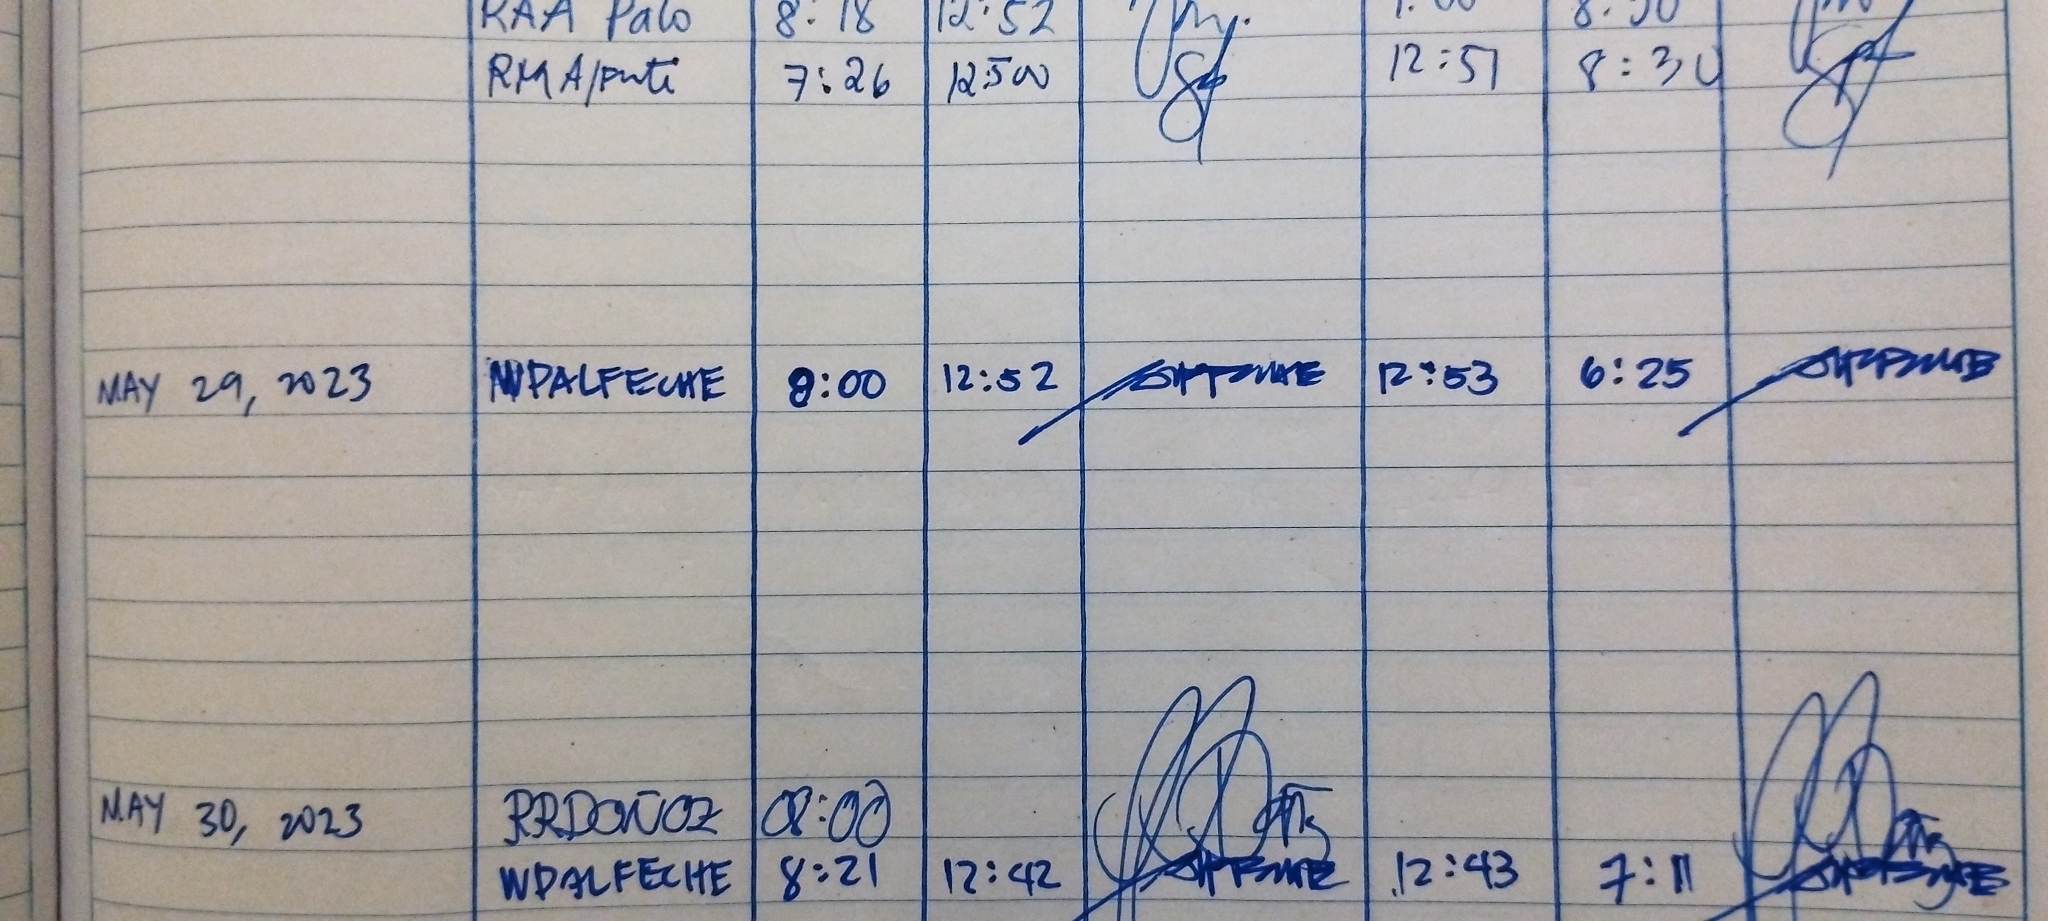 RAA Palo 8:18 12:52
RMA/puti 7:26 12:50 12:51 8:30
MAY 29, 2023 WPALFECHE 8:00 12:52 12:53 6:25
MAY 30, 2023 RRDOÑOZ 08:00
WPALFECHE 8:21 12:42 12:43 7:11